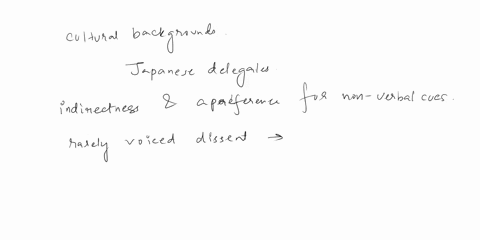 cultural backgrounds.
Japanese delegates
indirectness & a preference for non-verbal cues.
rarely voiced dissent →